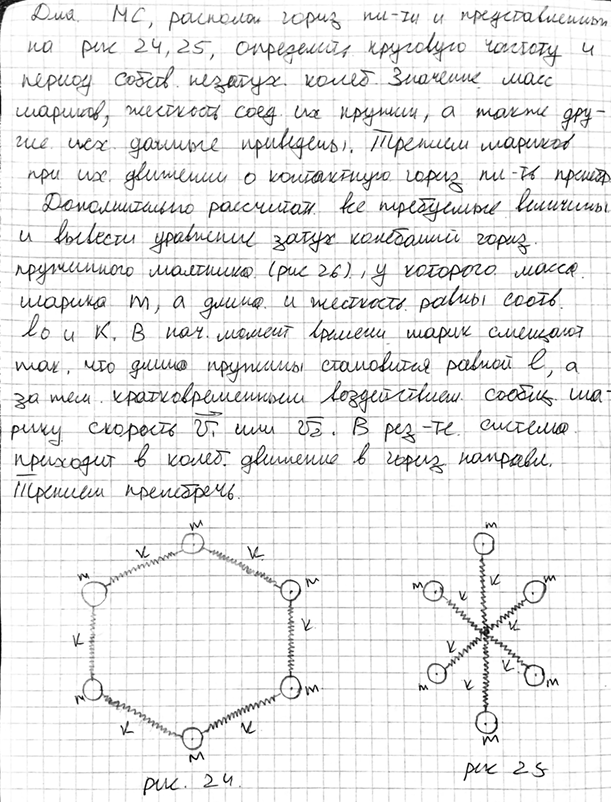 Для МС, распол. гориз пл-ти и представленным
на рис 24, 25, определить круговую частоту и
период собств. незатух. колеб. Значение масс
шариков, жесткость соед их пружин, а также дру-
гие исх. данные приведены. Трением шариков
при их движении о контактную гориз пл-ть пренебр
Дополнительно рассчитат все требуемые величины
и вывести уравнение затух колебаний гориз.
пружинного маятника (рис 26), у которого масса
шарика m, а длина и жесткость равны соотв.
l0 и K. В нач. момент времени шарик смещают
так, что длина пружины становится равной l, а
затем кратковременным воздействием сообщ. ша-
рику скорость V1 или V2. В рез-те система
приходит в колеб. движение в гориз направл.
Трением пренебречь.
m m
K K K m
m m
K K K
K K K
m m m
K K K m
m m
рис. 24 рис 25